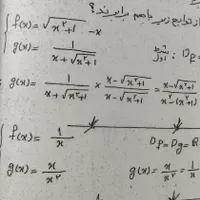 از توابع زیر باهم برابرند؟
f(x) = √(x²+1) - x
g(x) = 1/(x + √(x²+1))
شرط اول : D_f =
g(x) = 1/(x + √(x²+1)) × (x - √(x²+1))/(x - √(x²+1)) = (x - √(x²+1))/(x - (x²+1)
f(x) = 1/x
D_f = D_g = R
g(x) = x/x²
g(x) = x/x² = 1/x